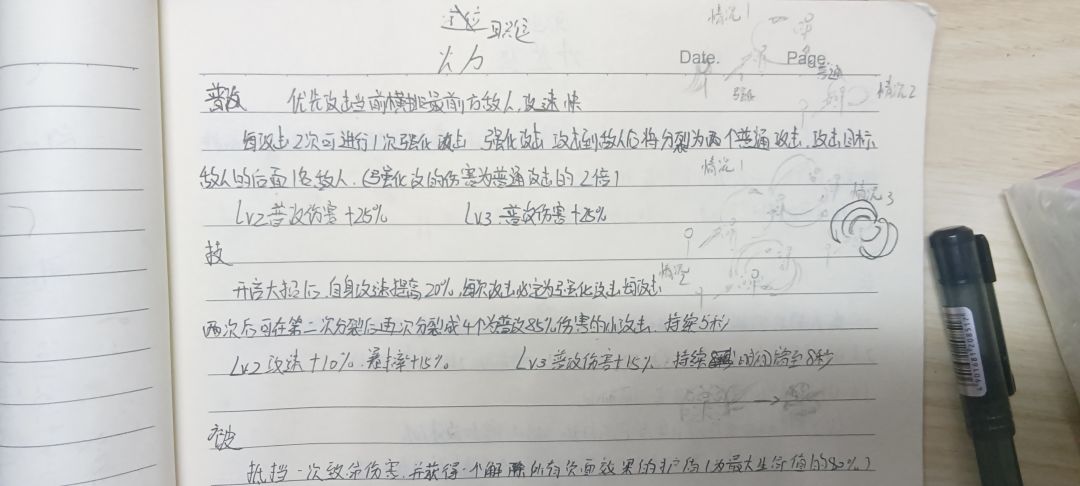 火力
Date. Page.
情况1
普通
强化
情况2
普攻 优先攻击当前横排最前方敌人,攻速快
每攻击2次可进行1次强化攻击 强化攻击 攻击到敌人后将分裂为两个普通攻击,攻击目标
敌人的后面1名敌人.(强化攻击的伤害为普通攻击的2倍)
情况1
情况3
Lv2 普攻伤害+25% Lv3 普攻伤害+25%
技
情况2
开启大招后,自身攻速提高20%,每次攻击必定为强化攻击 每攻击
两次后可在第二次分裂后再次分裂成4个为普攻85%伤害的小攻击.持续5秒
Lv2 攻速+10%.暴击率+15% Lv3 普攻伤害+15% 持续时间增至8秒
抵挡一次致命伤害,并获得一个解除所有负面效果的护盾(为最大生命值的80%)
4901681208517